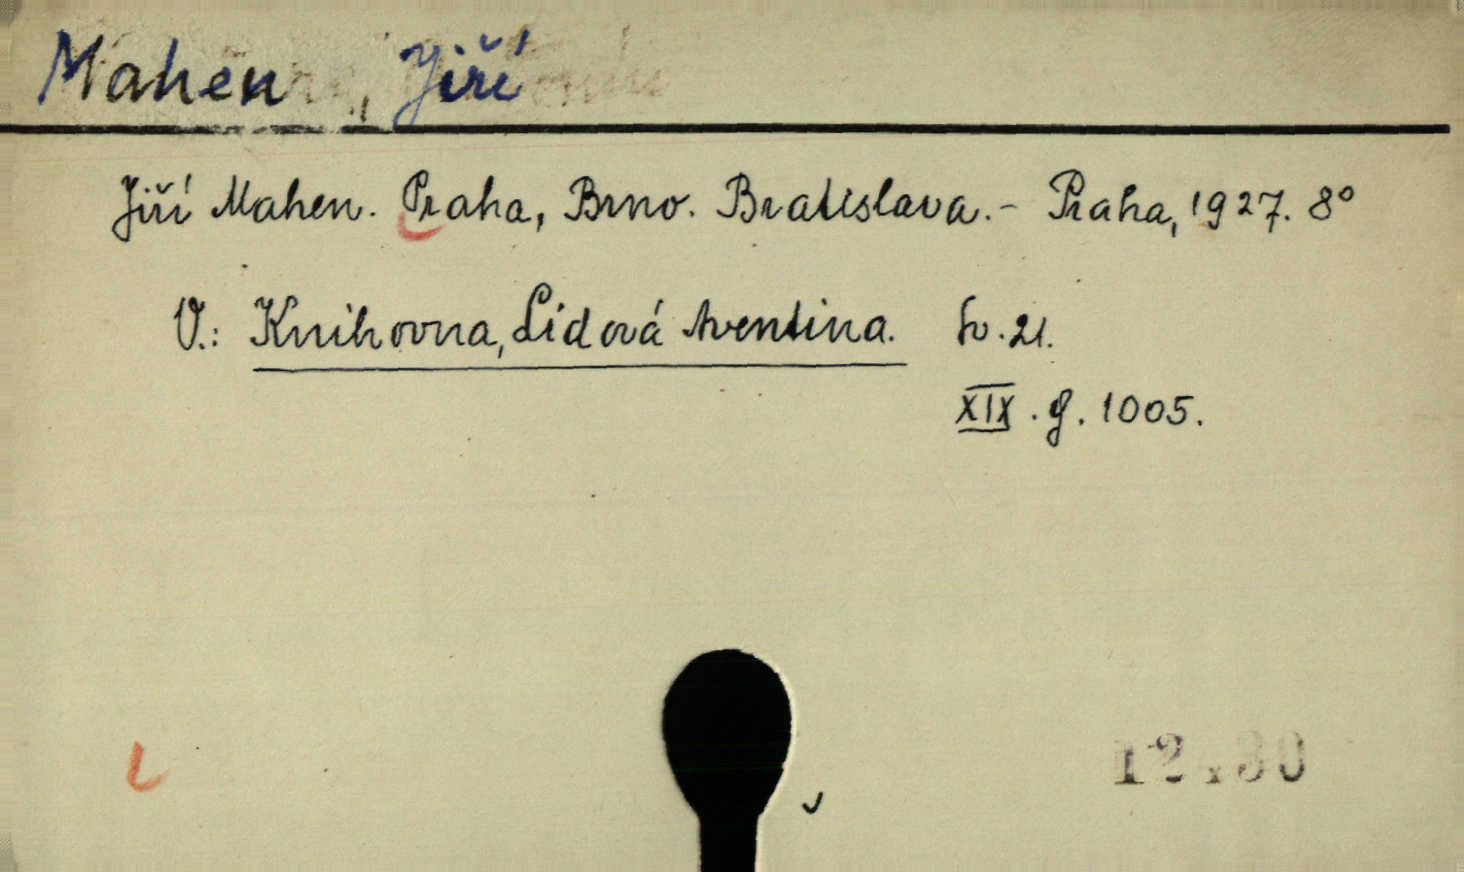 Mahen, Jiří
Jiří Mahen. Praha, Brno. Bratislava.- Praha, 1927. 8°
V.: Knihovna, Lidová Aventina. Sv. 21.
XIX. g. 1005.